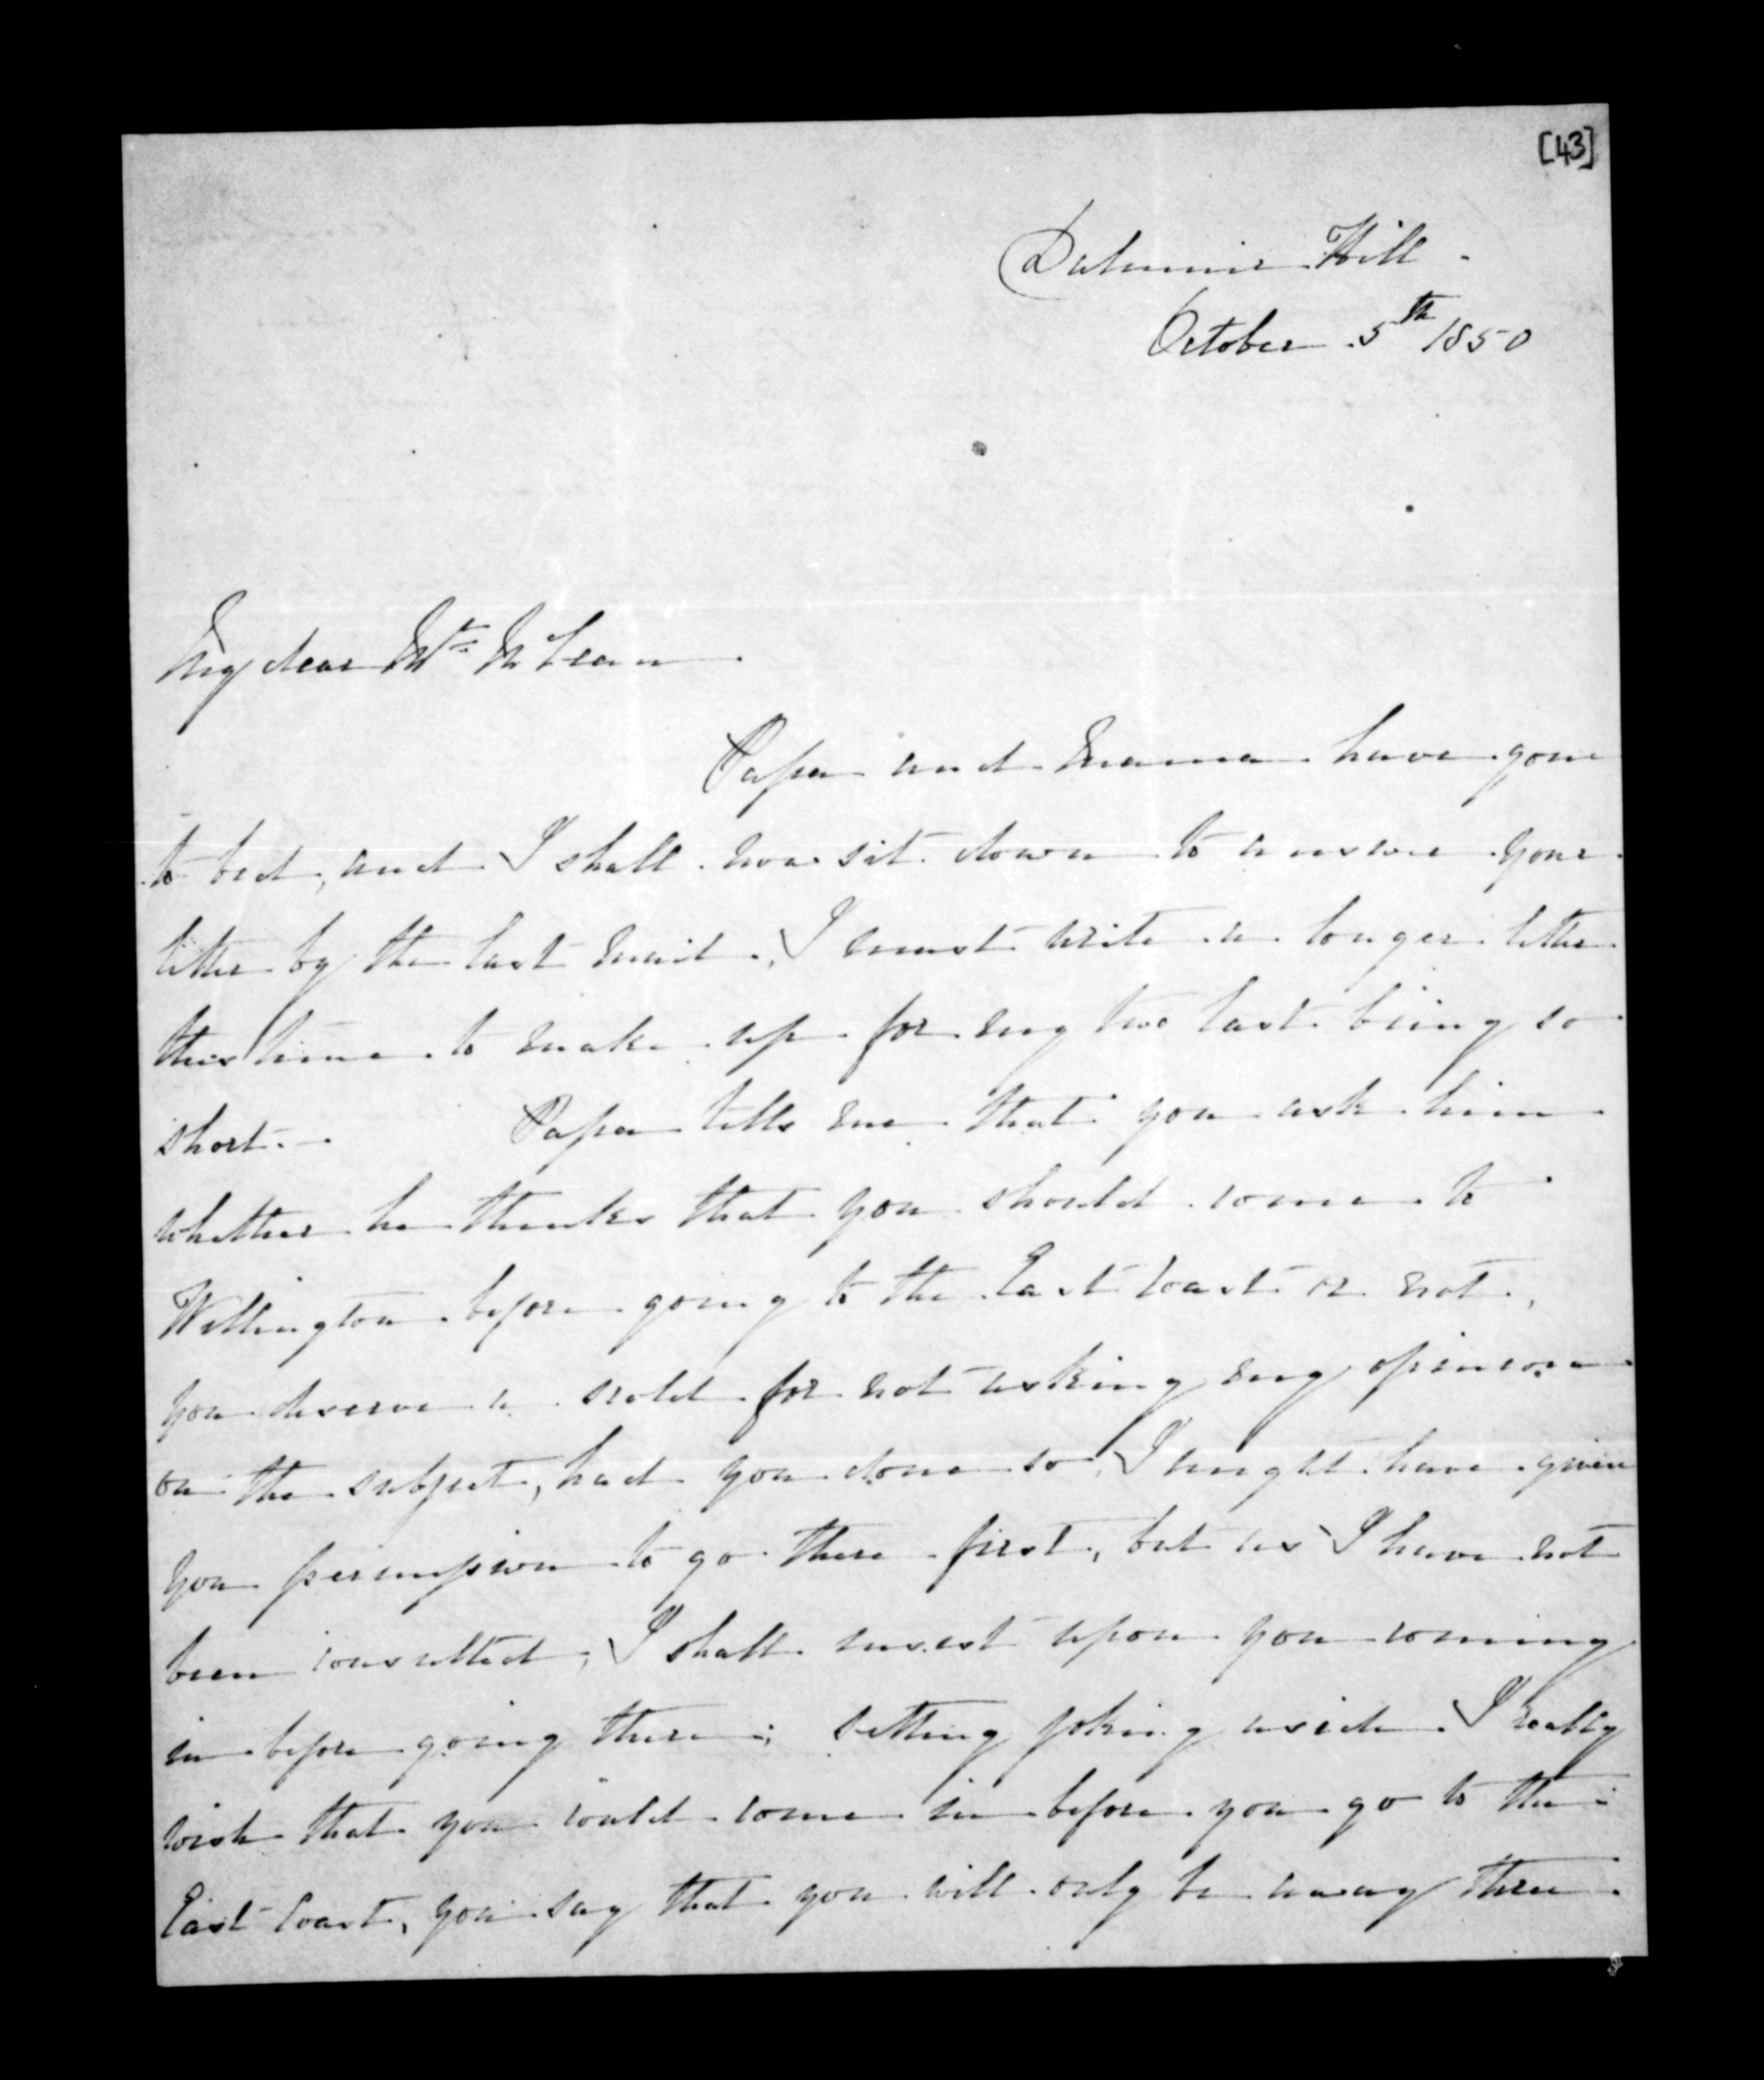 [43]
Dalmuir Hill.
October 5th 1850
My dear Mr McLean.
Papa and Mama have gone
to bed, and I shall now sit down to answer your
letter by the last mail. I must write a longer letter
this time to make up for my two last being so
short. Papa tells me that you ask him
whether he thinks that you should come to
Wellington before going to the East Coast or not,
you deserve a scold for not asking my opinion
on the subject, had you done so, I might have given
you permission to go there first, but as I have not
been consulted, I shall insist upon you coming
in before going there; setting joking aside I really
wish that you could come in before you go to the
East Coast, you say that you will only be away three